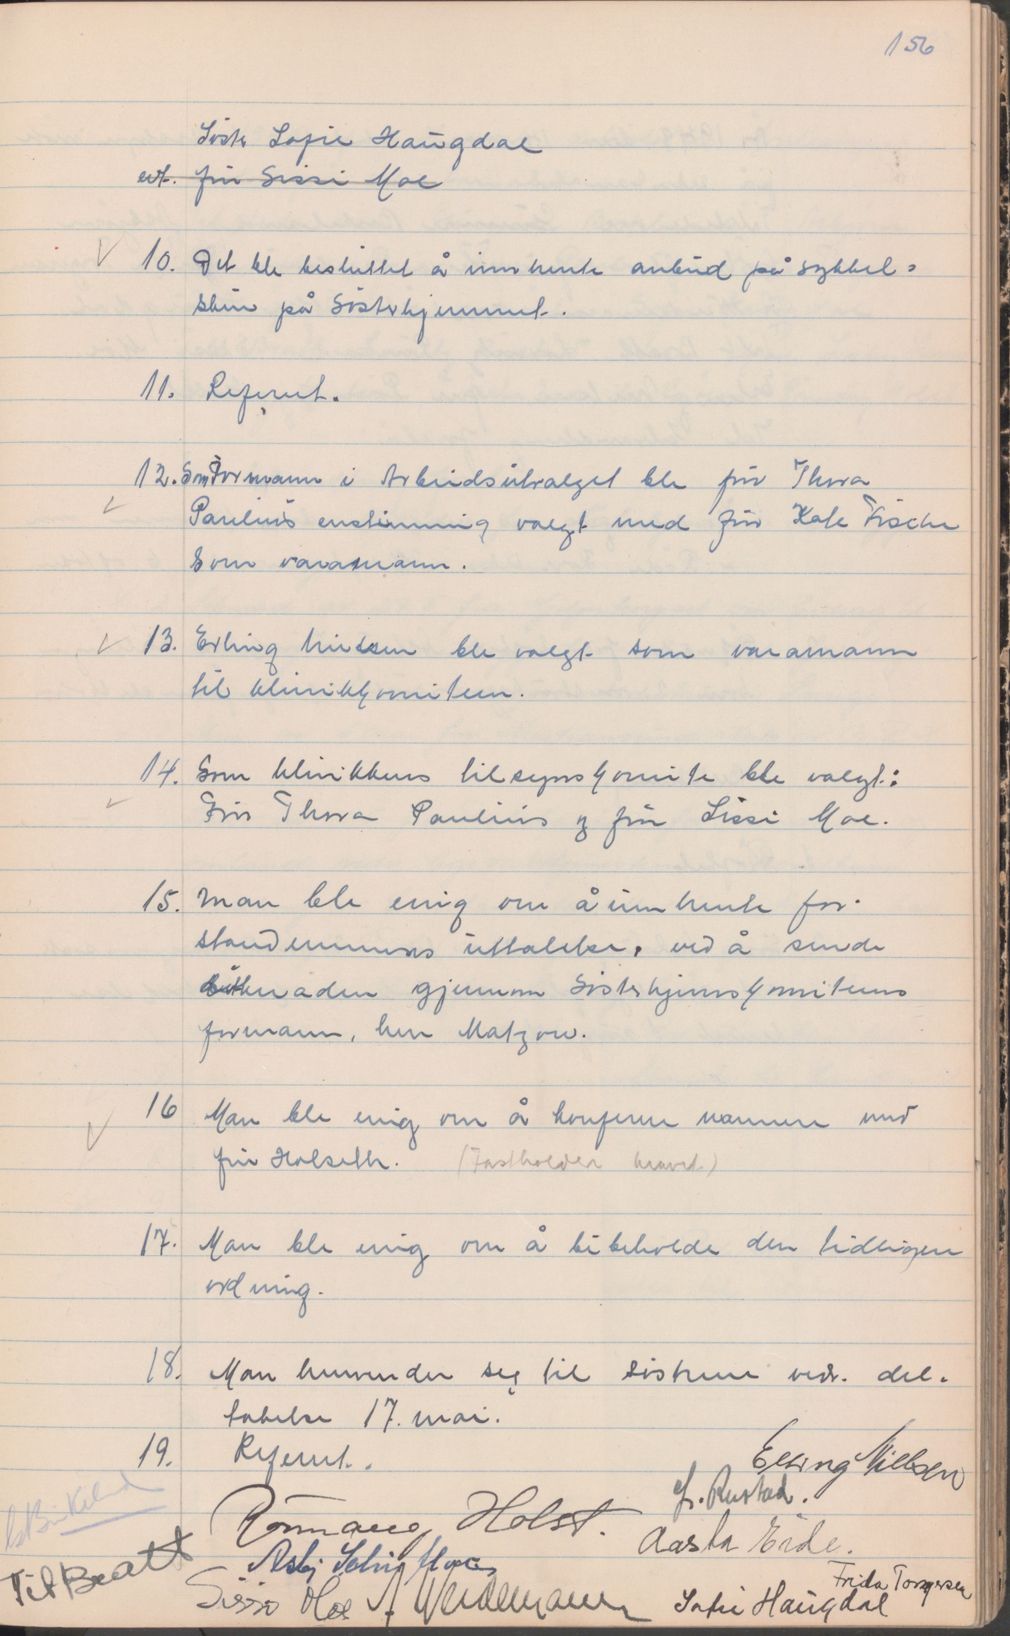 156
Söster Sofie Haugdal
evt. fru Sissi Moe
10. Det ble besluttet å innhente anbud på sykkel=
skur på Sösterhjemmet.
11. Referert.
12. Som Formann i Arbeidsutvalget ble fru Thora
Paulius enstimmig valgt med fru Kate Fische
som varamann.
13. Erling Nielsen ble valgt som varamann
til klinikkomiteen.
14. Som klinikkens tilsynskomite ble valgt:
Fru Thora Paulius og fru Sissi Moe.
15. Man ble enig om å innhente for-
standerinnens uttalelse, ved å sende
gjennom Sösterhjemskomiteens
formann, herr Matzow.
16 Man ble enig om å konferere nærmere med
fru Holseth. (Fastholder kravet)
17. Man ble enig om å bibeholde den tidligere
ordning.
18. Man henvender seg til söstrene vedr. del-
takelse 17. mai.
19. Referert.
Erling Nielsen
Fr. Rustad.
Romaug Holst.
Aasta Eide.
Tit Bratt
Frida Torgersen
Sissi Moe
Sofie Haugdal